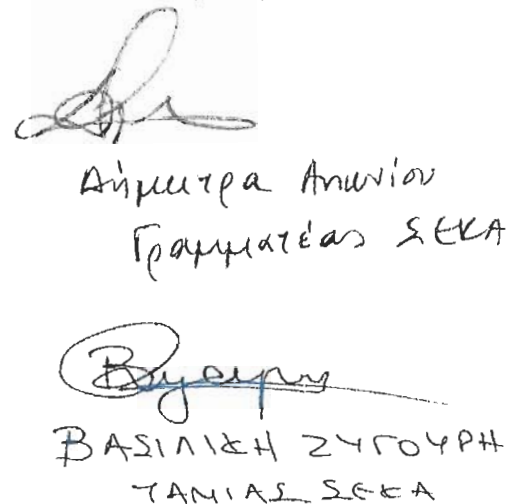 Δήμητρα Αντωνίου
Γραμματέας ΣΕΚΑ
ΒΑΣΙΛΙΚΗ ΖΥΓΟΥΡΗ
ΤΑΜΙΑΣ ΣΕΚΑ